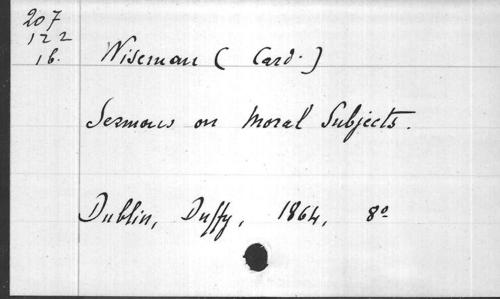 207
122
16.
Wiseman ( Card. )
Sermons on Moral Subjects.
Dublin, Duffy, 1864, 8º